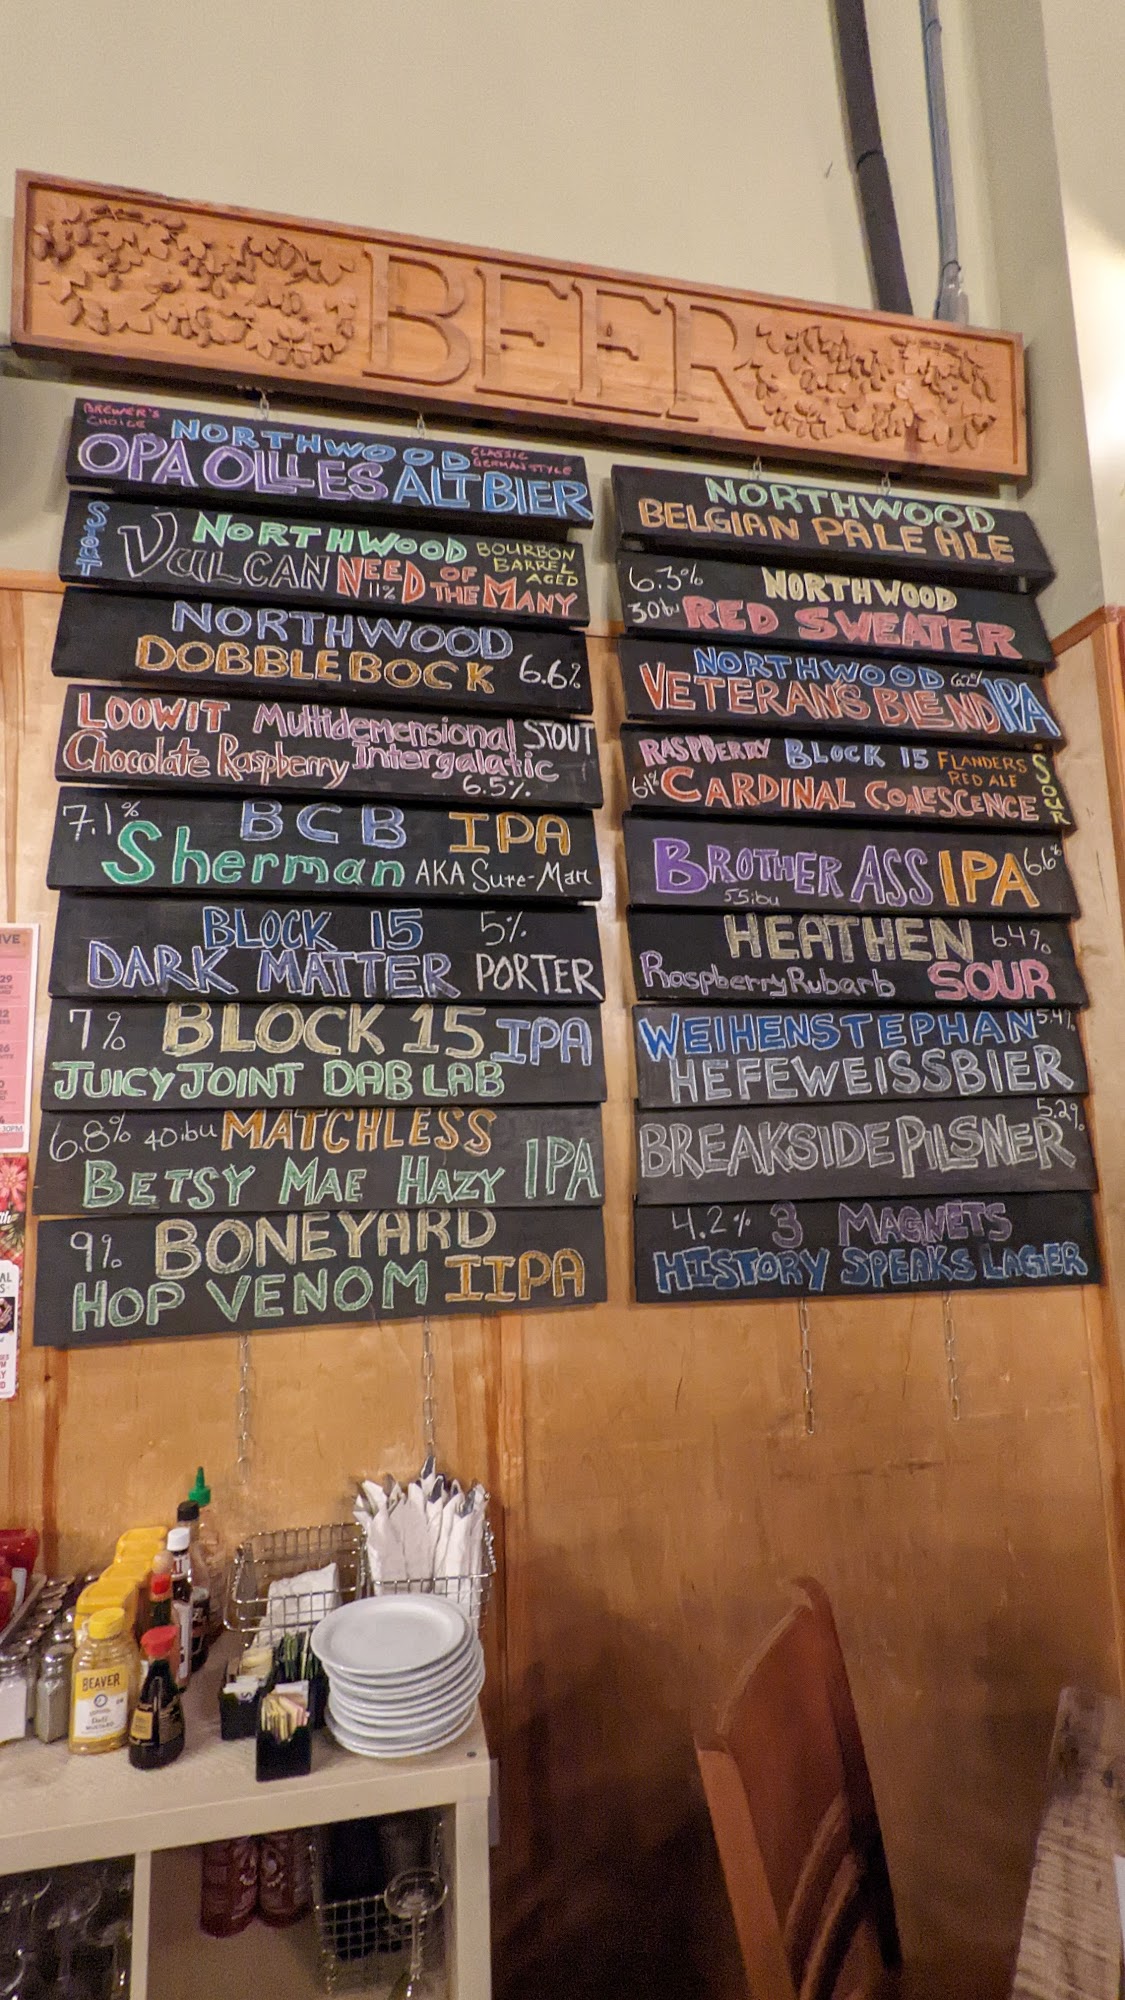 BEER
BREWER'S
CHOICE
NORTHWOOD
CLASSIC
GERMAN STYLE
OPA OLLLES ALT BIER
STOUT
NORTHWOOD
BOURBON
BARREL
AGED
VULCAN NEED OF THE MANY
11%
NORTHWOOD
DOBBLEBOCK 6.6%
LOOWIT Multidemensional STOUT
Chocolate Raspberry Intergalatic
6.5%
7.1% BCB IPA
Sherman AKA Sure-Man
BLOCK 15 5%
DARK MATTER PORTER
7% BLOCK 15 IPA
JUICY JOINT DAB LAB
6.8% 40ibu MATCHLESS
BETSY MAE HAZY IPA
9% BONEYARD
HOP VENOM IIPA
NORTHWOOD
BELGIAN PALE ALE
6.3% NORTHWOOD
30ibu RED SWEATER
NORTHWOOD 6.2%
VETERAN'S BLEND IPA
RASPBERRY BLOCK 15 FLANDERS
RED ALE
6.1% CARDINAL COALESCENCE
SOUR
BROTHER ASS IPA 6.6%
55ibu
HEATHEN 6.4%
Raspberry Rubarb SOUR
WEIHENSTEPHAN 5.4%
HEFEWEISSBIER
5.2%
BREAKSIDE PILSNER
4.2% 3 MAGNETS
HISTORY SPEAKS LAGER
BEAVER